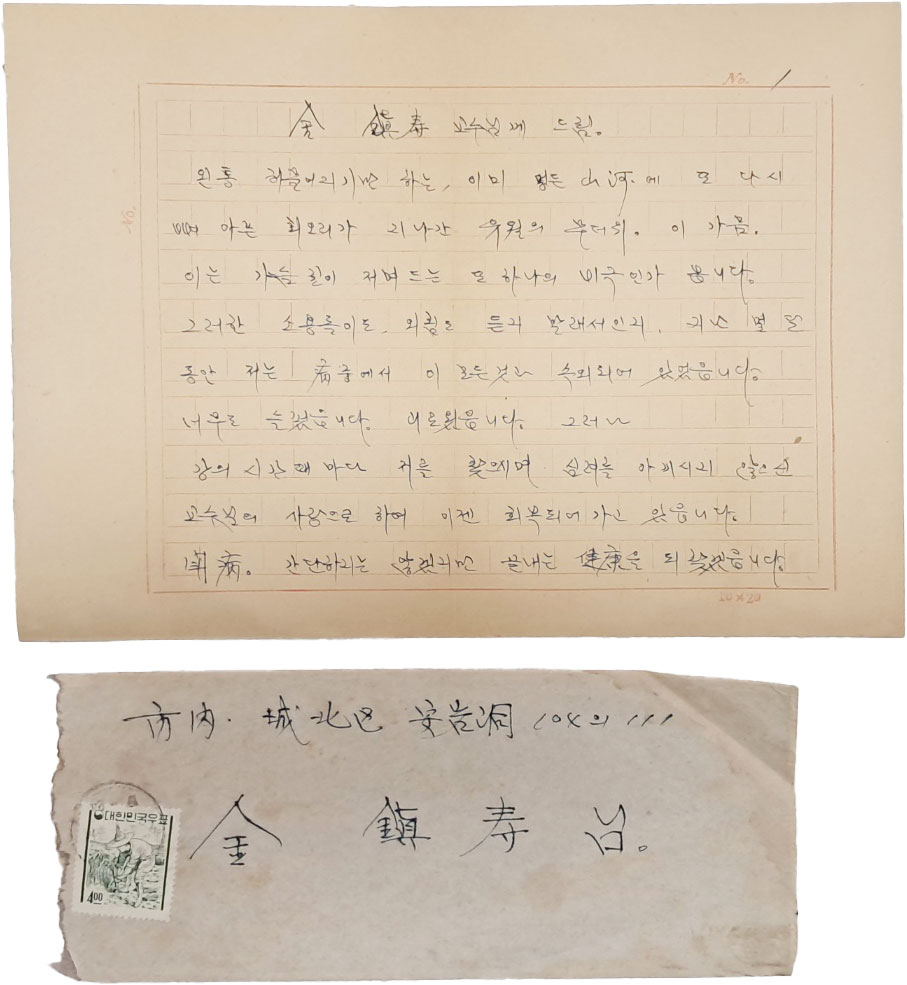 No. 1
金 鎭寿 교수님께 드림.
왼통 허물어지기만 하는, 이미 병든 山河에 또 다시
뼈 아픈 회오리가 지나간 유월의 무더위. 이 가뭄.
이는 가슴 깊이 저며드는 또 하나의 비극인가 봅니다.
그러한 소용돌이도, 외침도 듣지 말래서인지, 지난 몇 달
동안 저는 病중에서 이 모든것과 속외되어 있었읍니다.
너무도 슬펐읍니다. 괴로웠읍니다. 그러나
강의 시간 때 마다 저를 찾으시며 심려를 아끼시지 않으신
교수님의 사랑으로 하여 이젠 회복되어 가고 있읍니다.
闘病. 간단하지는 않겠지만 끝내는 健康을 되찾겠읍니다.
No.
20×20
市内. 城北区 安岩洞 104의 111
金 鎭寿
대한민국우표
4.00